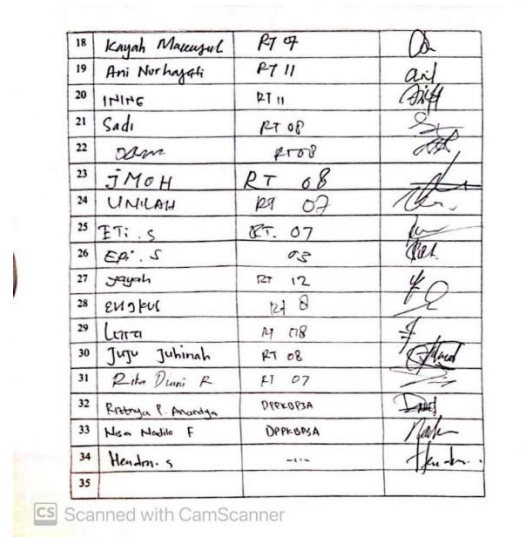 18 Kayah RT 07
19 Ani Nurhayati RT 11
20 INING RT 11
21 Sadi RT 08
22 RT 08
23 JMOH RT 08
24 UNILAH RT 07
25 ETi . S RT. 07
26 EPi . S 03
27 Yayah RT 12
28 ENGKUS Rt 8
29 08
30 Juju Juhinah RT 08
31 Rita Diani R RT 07
32 DPPKBP3A
33 Nisa Nadila F DPPKBP3A
34 Hendra. S ----
35
CS Scanned with CamScanner